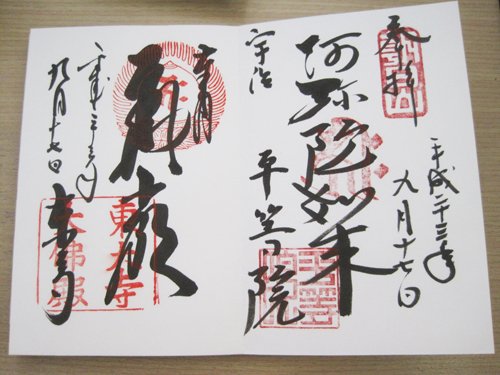 奉拝
平成二十三年
九月十七日
阿弥陀如来
宇治 平等院
奉拝
華厳
平成二十三年
九月十七日
東大寺
東大寺
大佛殿